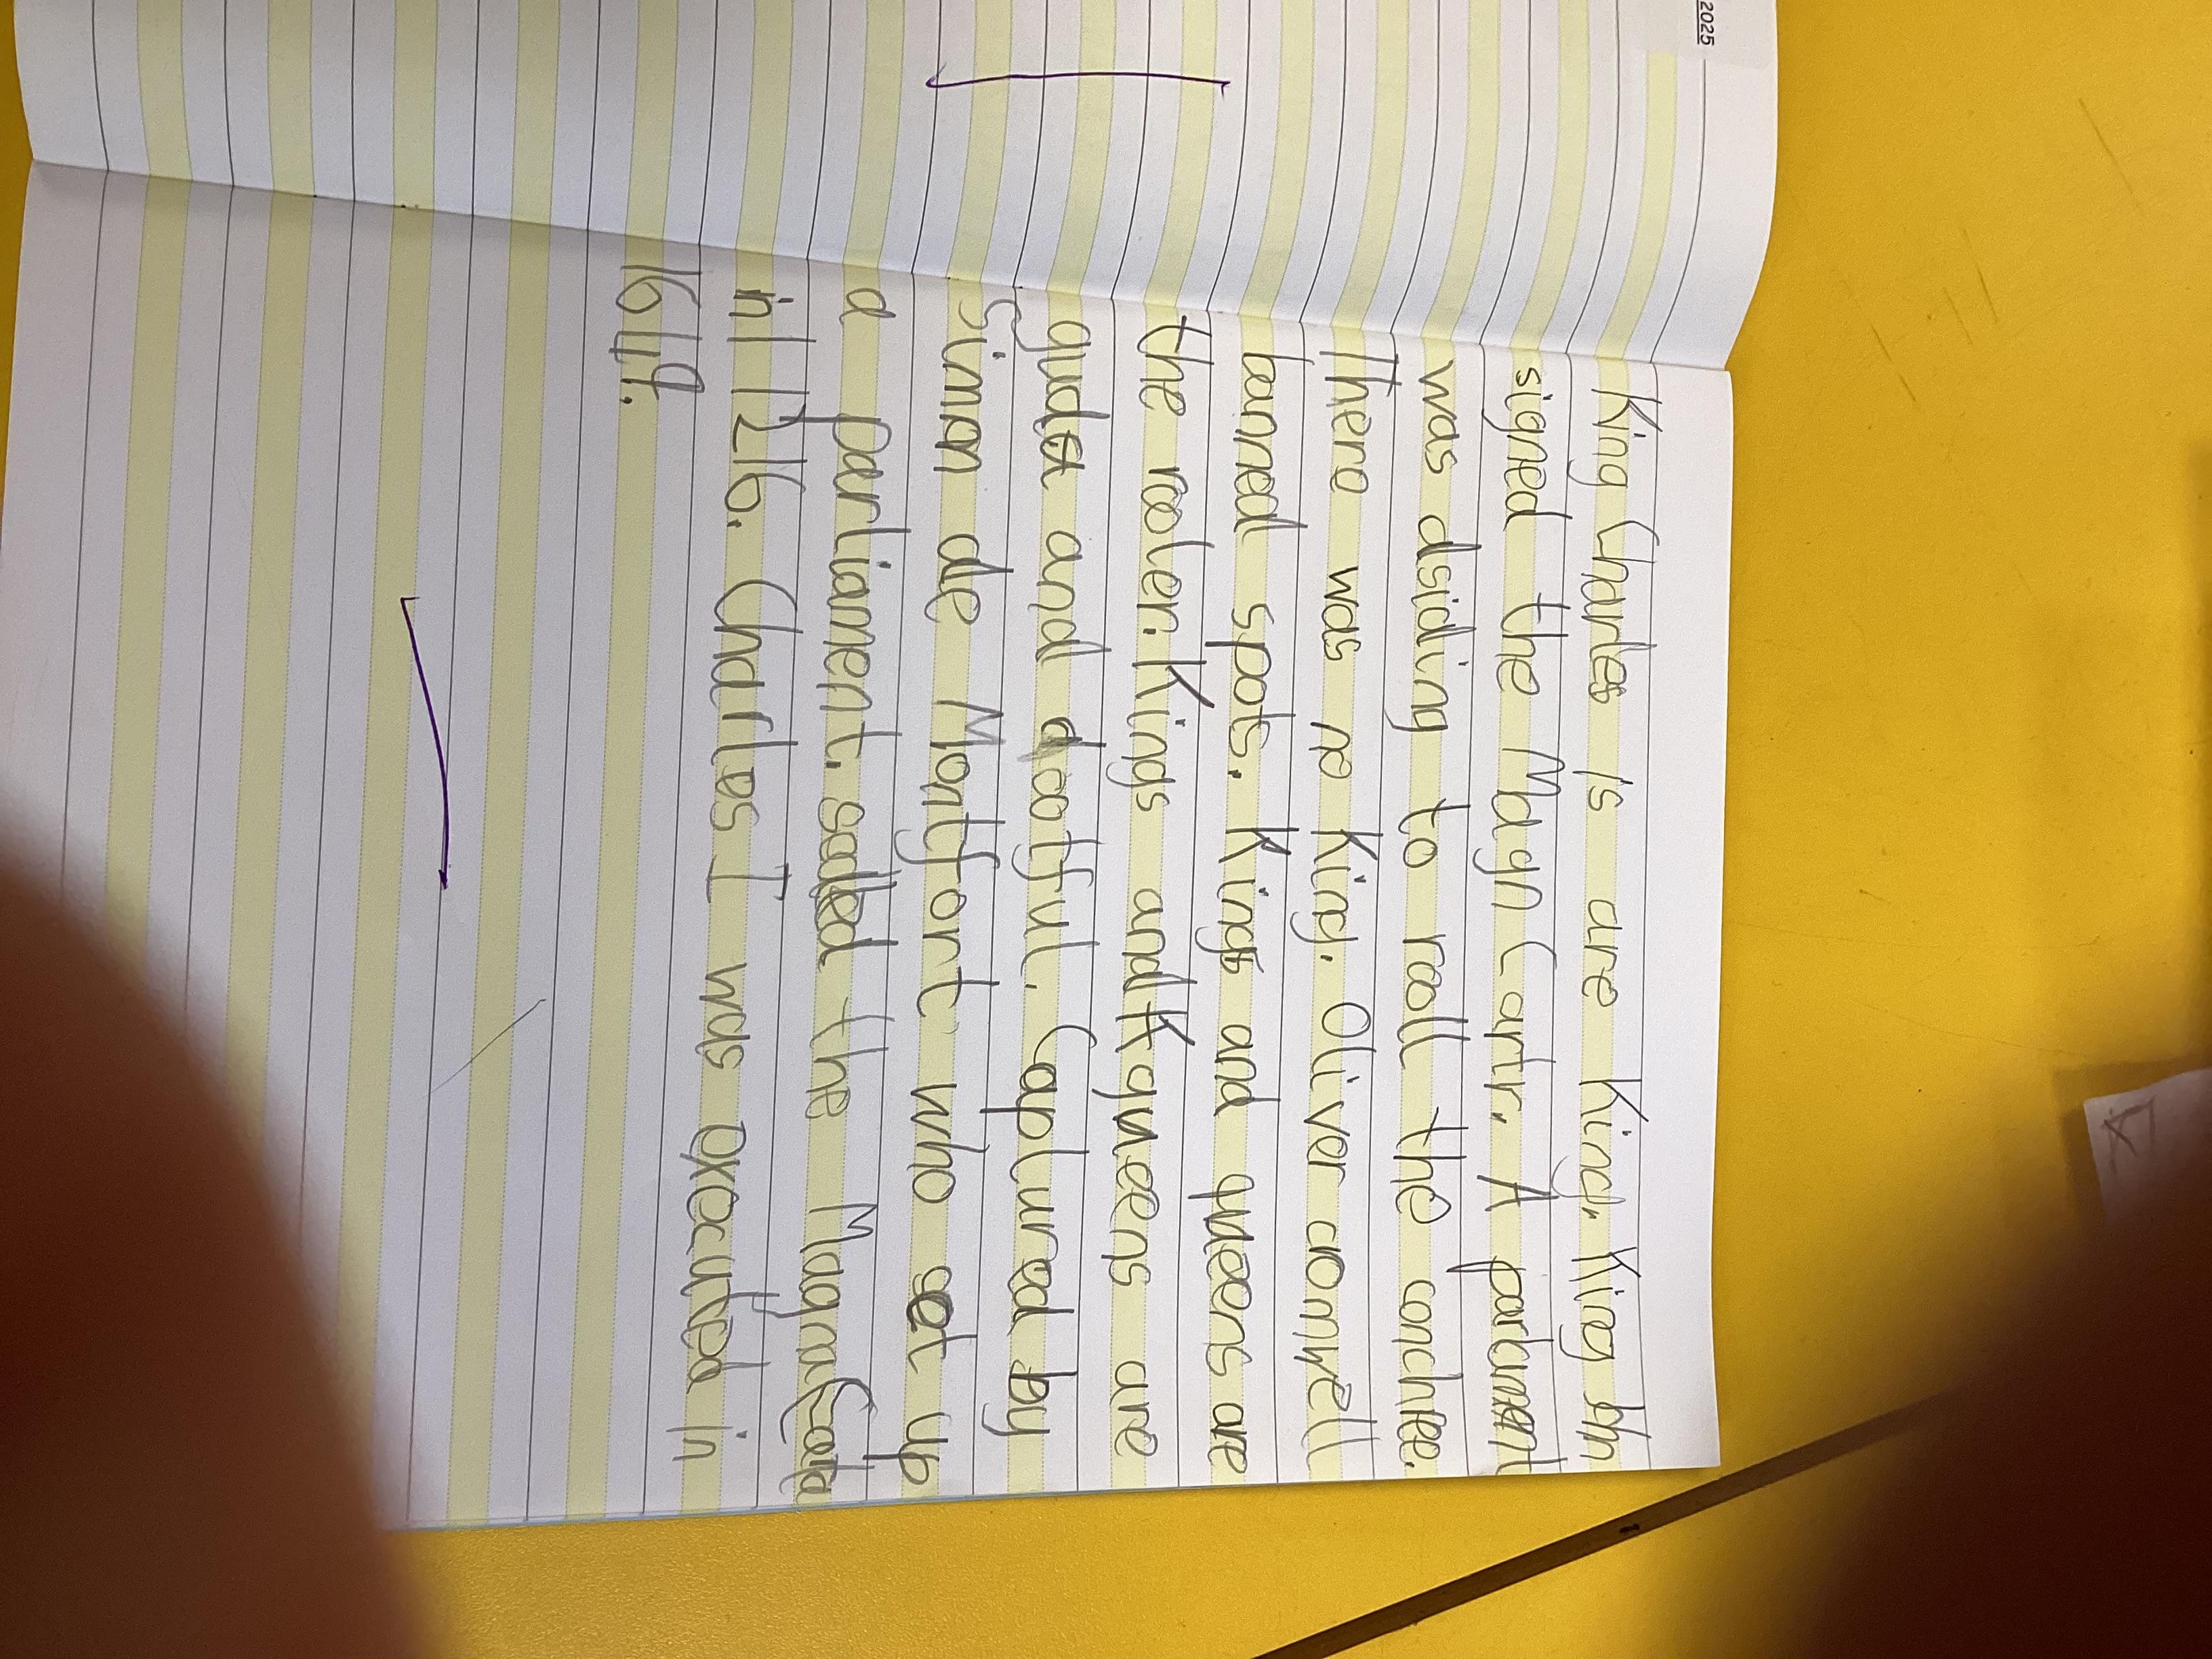 2025
King Charles is are King. King Jhn
signed the Magn Cartr. A parlument
was dsiding to rooll the conchree.
There was no King. Oliver cromwell
banned spots. Kings and queens are
the rooler. Kings and queens are
gudta and dootful. Captured by
Simon de Montfort who set up
a parliament. sealed the Magna Carta
in 1216. Charles I was executed in
1649.